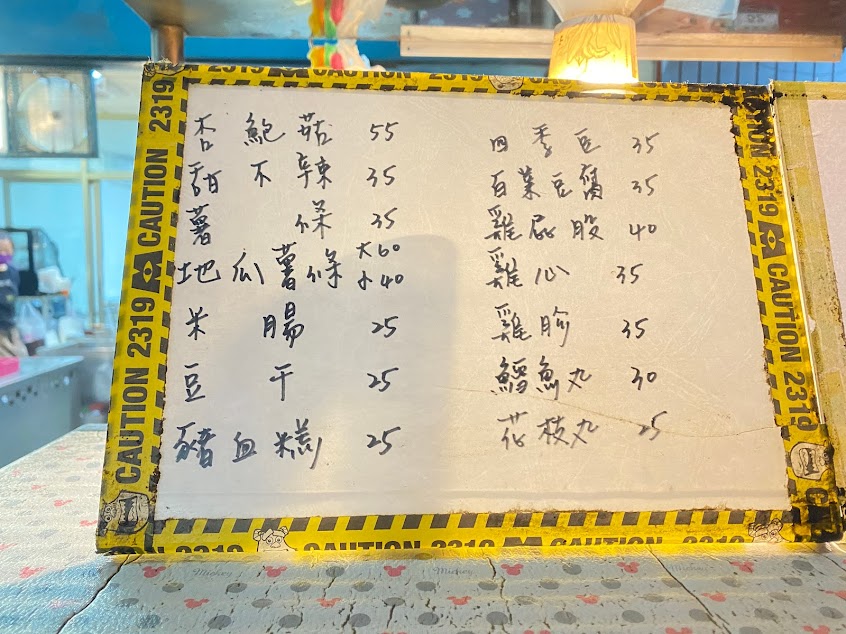 杏鮑菇 55
甜不辣 35
薯條 35
地瓜薯條 大60 小40
米腸 25
豆干 25
豬血糕 25
四季豆 35
百菜豆腐 35
雞屁股 40
雞心 35
雞胗 35
鱈魚丸 30
花枝丸 25
2319 CAUTION 2319
CAUTION 2319 CAUTION 2319
CAUTION 2319 CAUTION 2319
2319 CAUTION 2319 CAUTION
Mickey